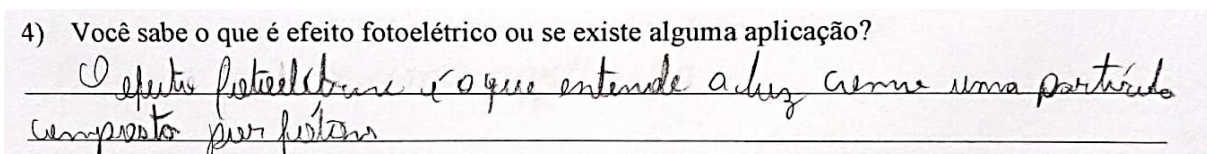 4) Você sabe o que é efeito fotoelétrico ou se existe alguma aplicação?
O efeito fotoelétrico é o que entende a luz como uma partícula
composto por fótons